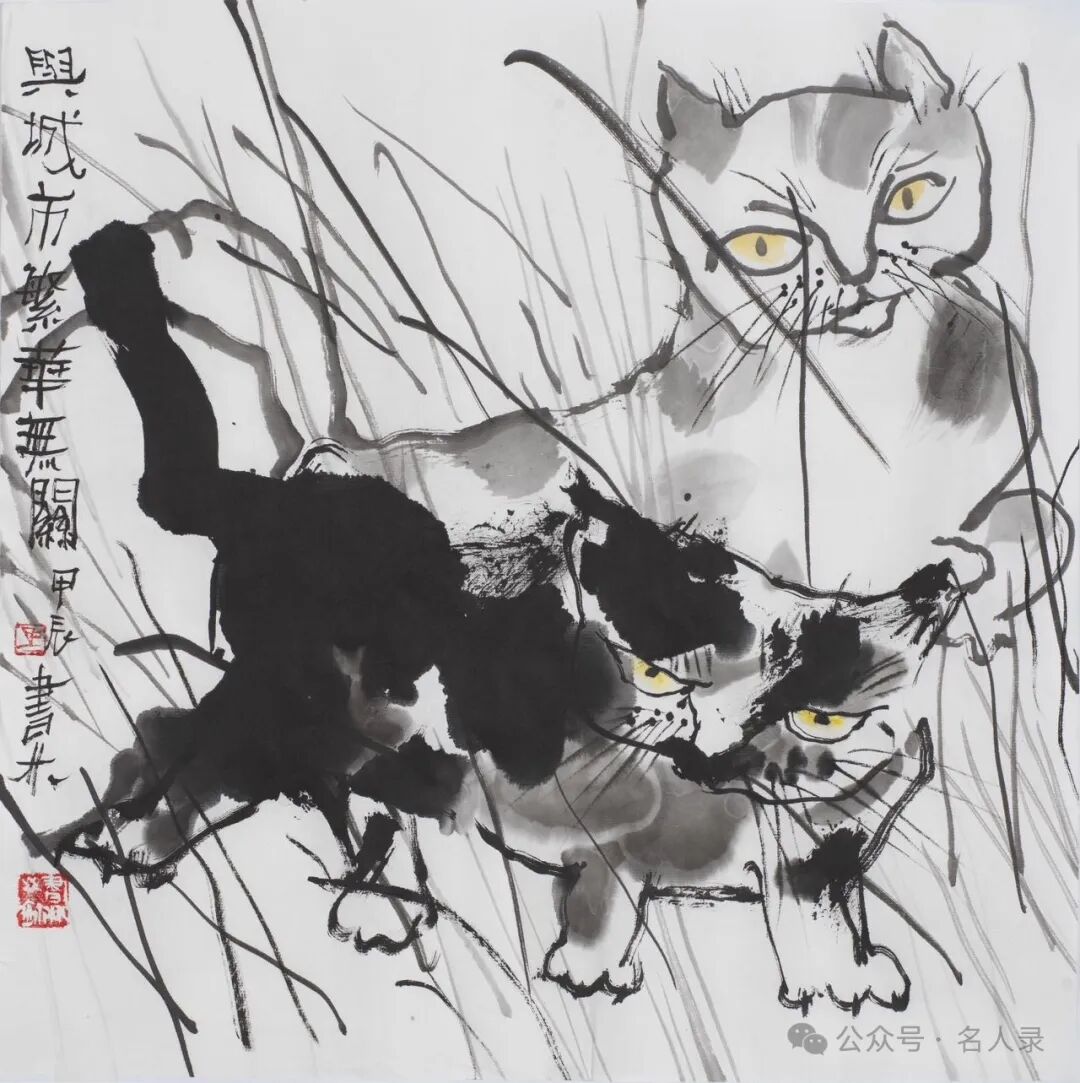 與城市繁華無關 甲辰 書林
公众号·名人录